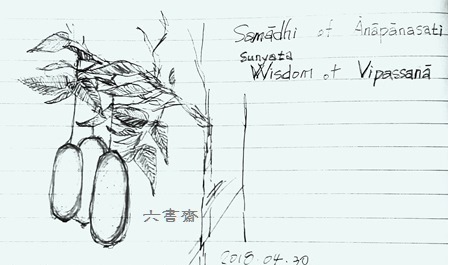 Samādhi of Ānāpānasati
Sunyata
Wisdom of Vipassanā
六書齋
2018.04.30